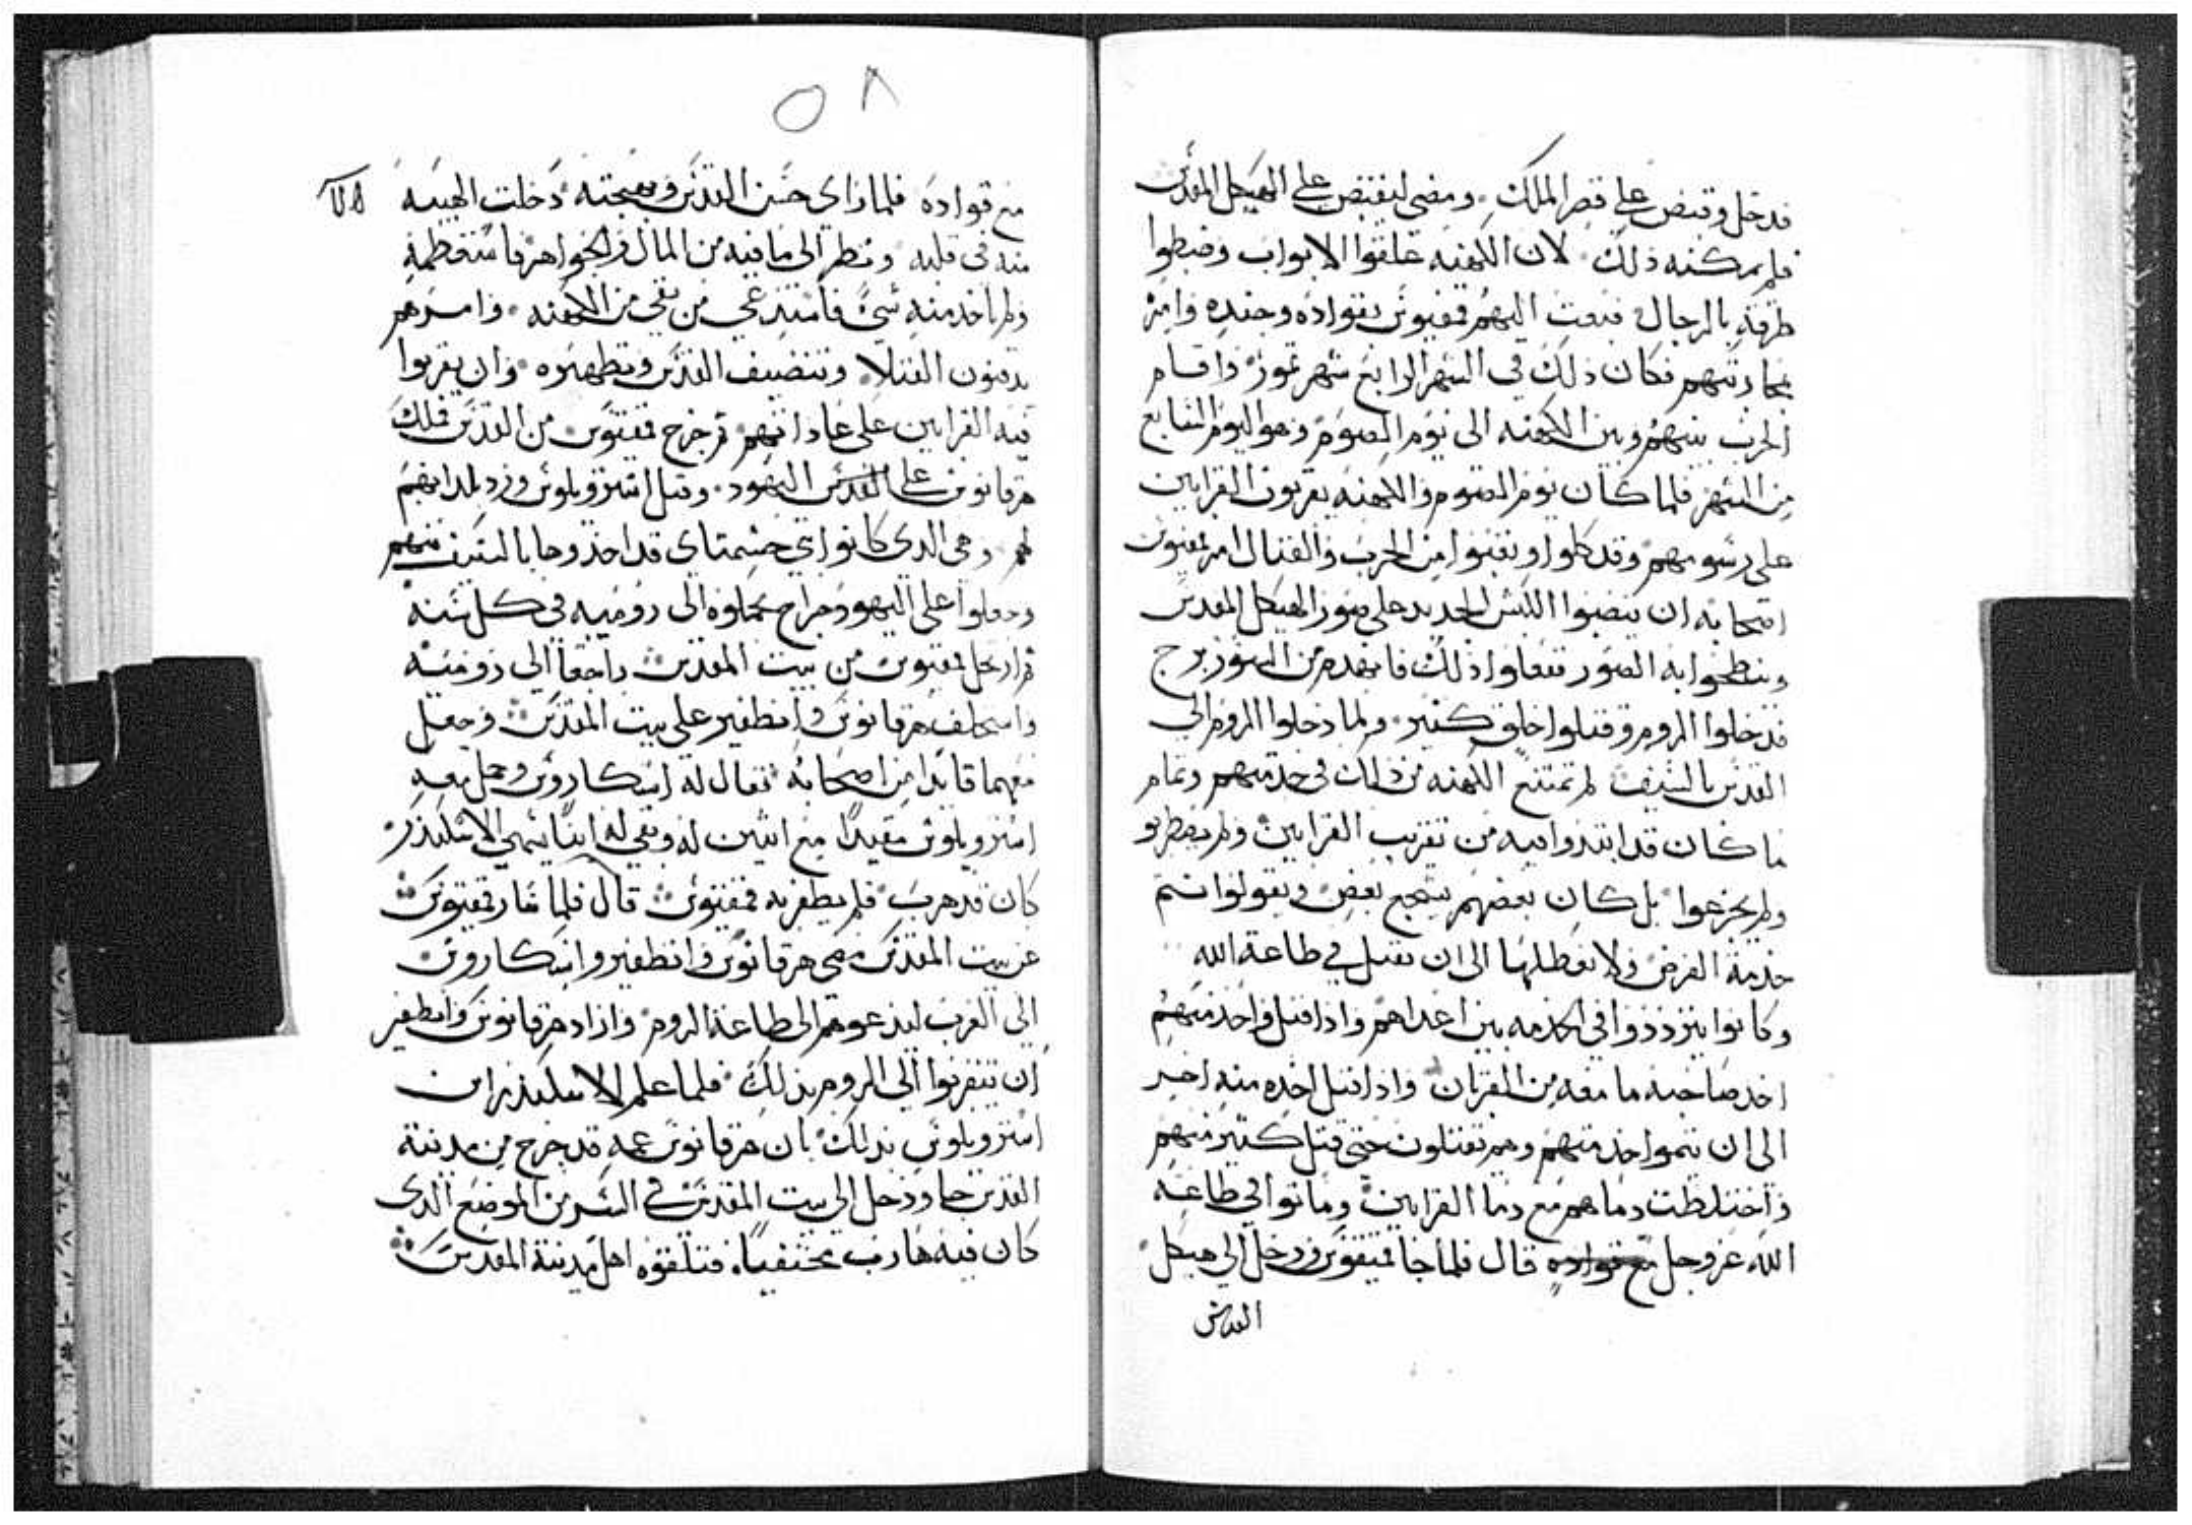 فدخل وقبض على قصر الملك ومضى ليقبض على الهيكل المقدس
فلم يمكنه ذلك لان الكهنه غلقوا الابواب وضبطوا
طرقه بالرجال فبعث اليهم فمفيوس بقواده وجنده وامر
بمحاربتهم فكان ذلك في الشهر الرابع شهر تموز واقام
الحرب بينهم وبين الكهنه الى يوم الصوم وهو اليوم السابع
من الشهر فلما كان يوم الصوم والكهنه يقربون القرابين
على رسومهم وقد كلوا وتعبوا من الحرب والقتال امر فمفيوس
اصحابه ان ينصبوا الكبش الحديد على صور الهيكل المقدس
وينطحوا به الصور ففعلوا ذلك فانهدم من السور برج
فدخلوا الروم وقتلوا خلق كثير ولما دخلوا الروم الى
القدس بالسيف لم تمتنع الكهنه من ذلك في خدمتهم وتمام
ما كان قد ابتدوا فيه من تقريب القرابين ولم يضطربو
ولم يجزعوا بل كان بعضهم يشجع بعض ويقولوا نتم
خدمة الفرض ولا نعطلها الى ان نقتل في طاعة الله
وكانوا يترددوا في الخدمه بين اعداهم واذا قتل واحد منهم
اخد صاحبه ما معه من القربان واذا قتل اخده منه اخر
الى ان يتموا خدمتهم وهم يقتلون حتى قتل كثير منهم
واختلطت دماهم مع دما القرابين وماتوا في طاعة
الله عز وجل مع قواده قال فلما جا فمفيوس ودخل الى هيكل
القدس
٥٨
مع قواده فلما راى حسن القدس وبهجته دخلت الهيبه
منه في قلبه ونظر الى ما فيه من المال والجواهر فاستعظمه
ولم ياخد منه شي فاستدعى من بقي من الكهنه وامرهم
بدفنون القتلا وتنضيف القدس وتطهيره وان يقربوا
فيه القرابين على عاداتهم ثم خرج فمفيوس من القدس فملك
هرقانوس على القدس اليهود وقتل استروبلوس ورد بلدانهم
لهم وهي الدي كانوا بني حشمناي قد اخذوها بالسيف منهم
وجعلوا على اليهود خراج يحملوه الى روميه في كل سنه
ثم ارتحل فمفيوس من بيت المقدس راجعا الى روميه
واستخلف هرقانوس وانطفير على بيت المقدس وجعل
معهما قايدا من اصحابه يقال له اسكاروس وحمل معه
استروبلوس مقيدا مع اثنين له وبقي له ابنا يسمى الاسكندر
كان قد هرب فلم يظفر به فمفيوس قال فلما سار فمفيوس
عن بيت المقدس مضى هرقانوس وانطفير واسكاروس
الى العرب ليدعوهم الى طاعة الروم واراد هرقانوس وانطفير
ان يتقربوا الى الروم بذلك فلما علم الاسكندر ابن
استروبلوس بدلك بان هرقانوس عمه قد خرج من مدينة
القدس جا ودخل الى بيت المقدس في السر من الموضع الدى
كان فيه هارب مختفيا فتلقوه اهل مدينة المقدس